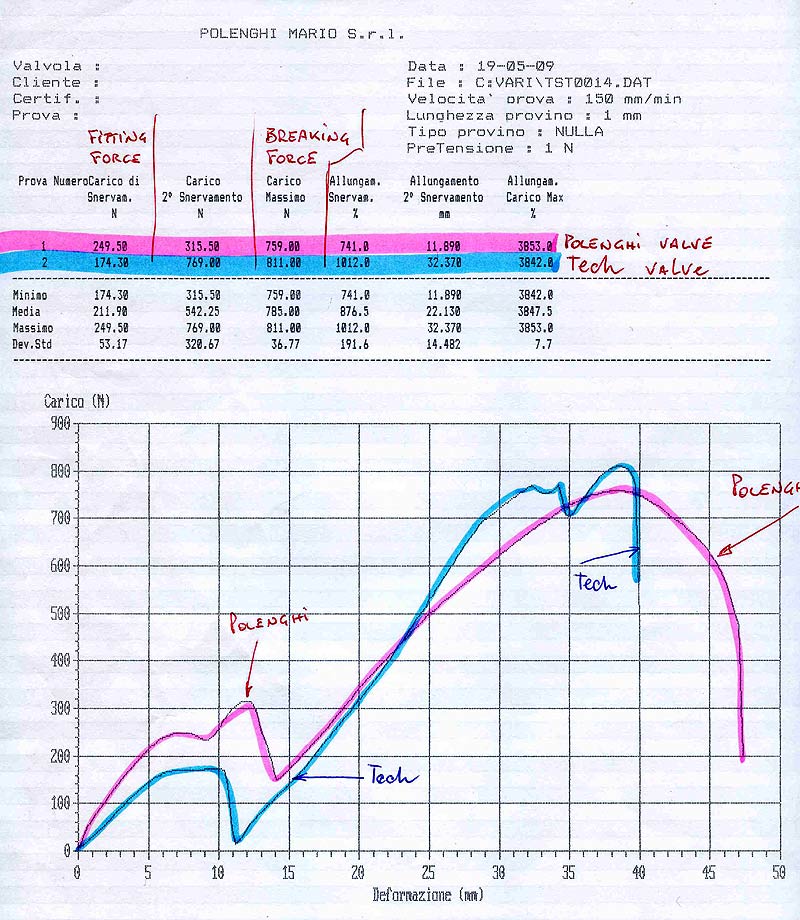 POLENGHI MARIO S.r.l.
Valvola :
Cliente :
Certif. :
Prova :
Data : 19-05-09
File : C:VARI\TST0014.DAT
Velocita' prova : 150 mm/min
Lunghezza provino : 1 mm
Tipo provino : NULLA
PreTensione : 1 N
FITTING FORCE
BREAKING FORCE
Prova Numero Carico di Snervam. N Carico 2° Snervamento N Carico Massimo N Allungam. Snervam. % Allungamento 2° Snervamento mm Allungam. Carico Max %
1 249.50 315.50 759.00 741.0 11.890 3853.0 POLENGHI VALVE
2 174.30 769.00 811.00 1012.0 32.370 3842.0 Tech VALVE
Minimo 174.30 315.50 759.00 741.0 11.890 3842.0
Media 211.90 542.25 785.00 876.5 22.130 3847.5
Massimo 249.50 769.00 811.00 1012.0 32.370 3853.0
Dev.Std 53.17 320.67 36.77 191.6 14.482 7.7
Carico (N)
900
800
700
600
500
400
300
200
100
0
POLENGH
Tech
POLENGHI
Tech
0 5 10 15 20 25 30 35 40 45 50
Deformazione (mm)